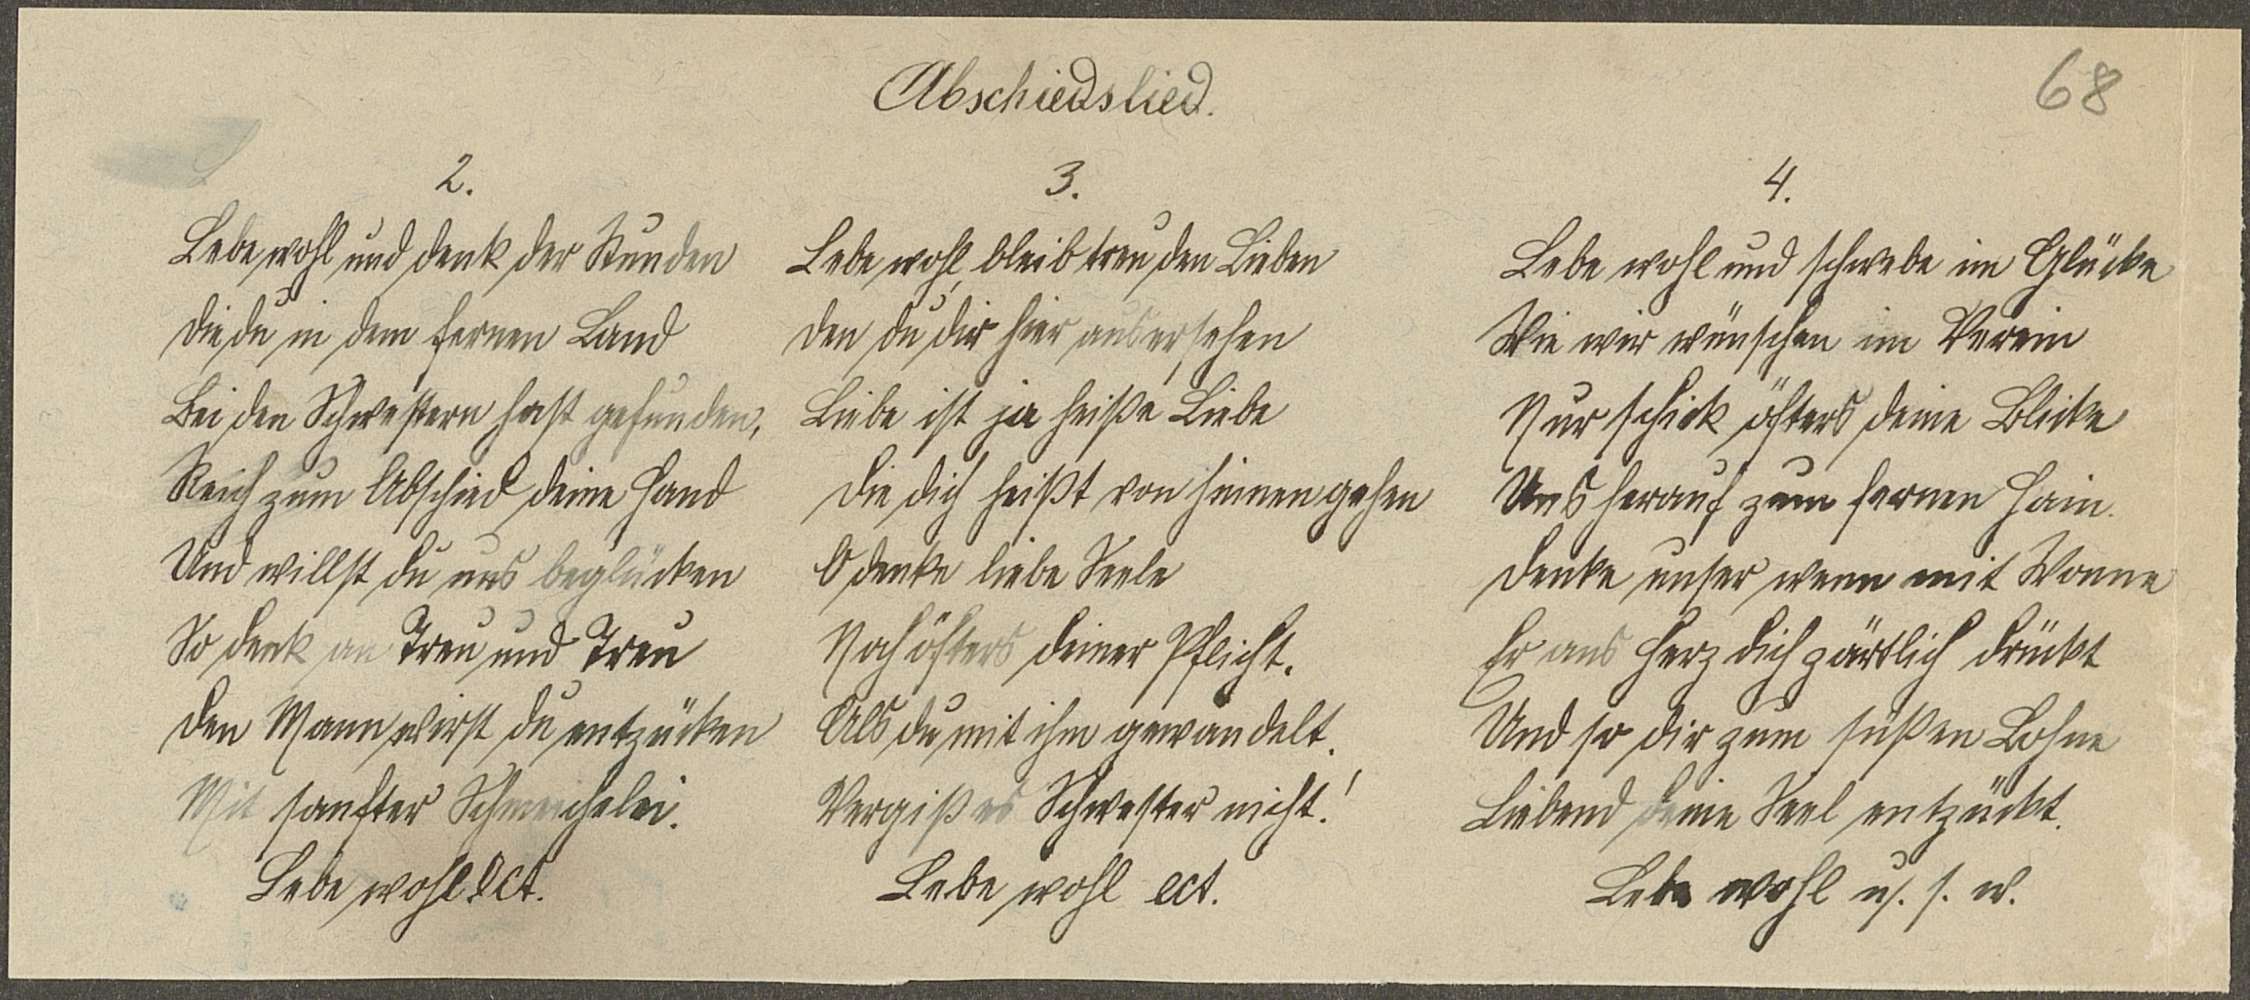 Abschiedslied.
68
2.
Lebe wohl und denk der Stunden
die du in dem fernen Land
Bei den Schwestern hast gefunden,
Reich zum Abschied deine Hand
Und willst du uns beglücken
So denk an Treu und Treu
den Mann wirst du entzücken
Mit sanfter Schmeichelei.
Lebe wohl ect.
3.
Lebe wohl, bleib treu den Lieben
den du dir hier ausersehen
Liebe ist ja heiße Liebe
die dich heißt von hinnen gehen
O denke liebe Seele
Noch öfters deiner Pflicht.
Als du mit ihm gewandelt.
Vergiß es Schwester nicht!
Lebe wohl ect.
4.
Lebe wohl und schwebe im Glücke
Wie wir wünschen im Verein
Nur schick öfters deine Blicke
Uns herauf zum fernen Hain.
denke unser wenn mit Wonne
Er ans Herz dich zärtlich drückt
Und so dir zum süßen Lohne
Liebend deine Seel entzückt.
Lebe wohl u. s. w.